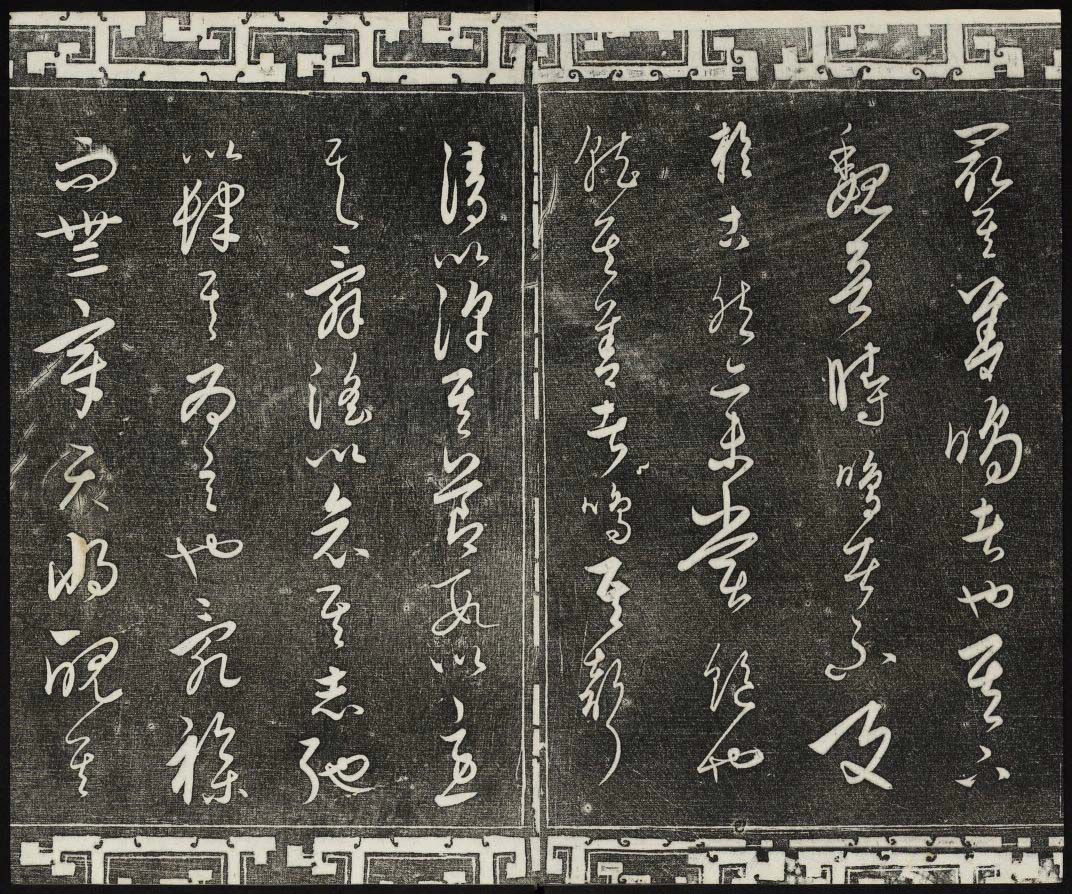 最其善鳴者也其下
魏晉時鳴者不及
於古然亦未嘗絕也
就其善者鳴其聲
清以浮其節數以急
其辭淫以哀其志弛
以肆其為言也亂雜
而無章天將醜其